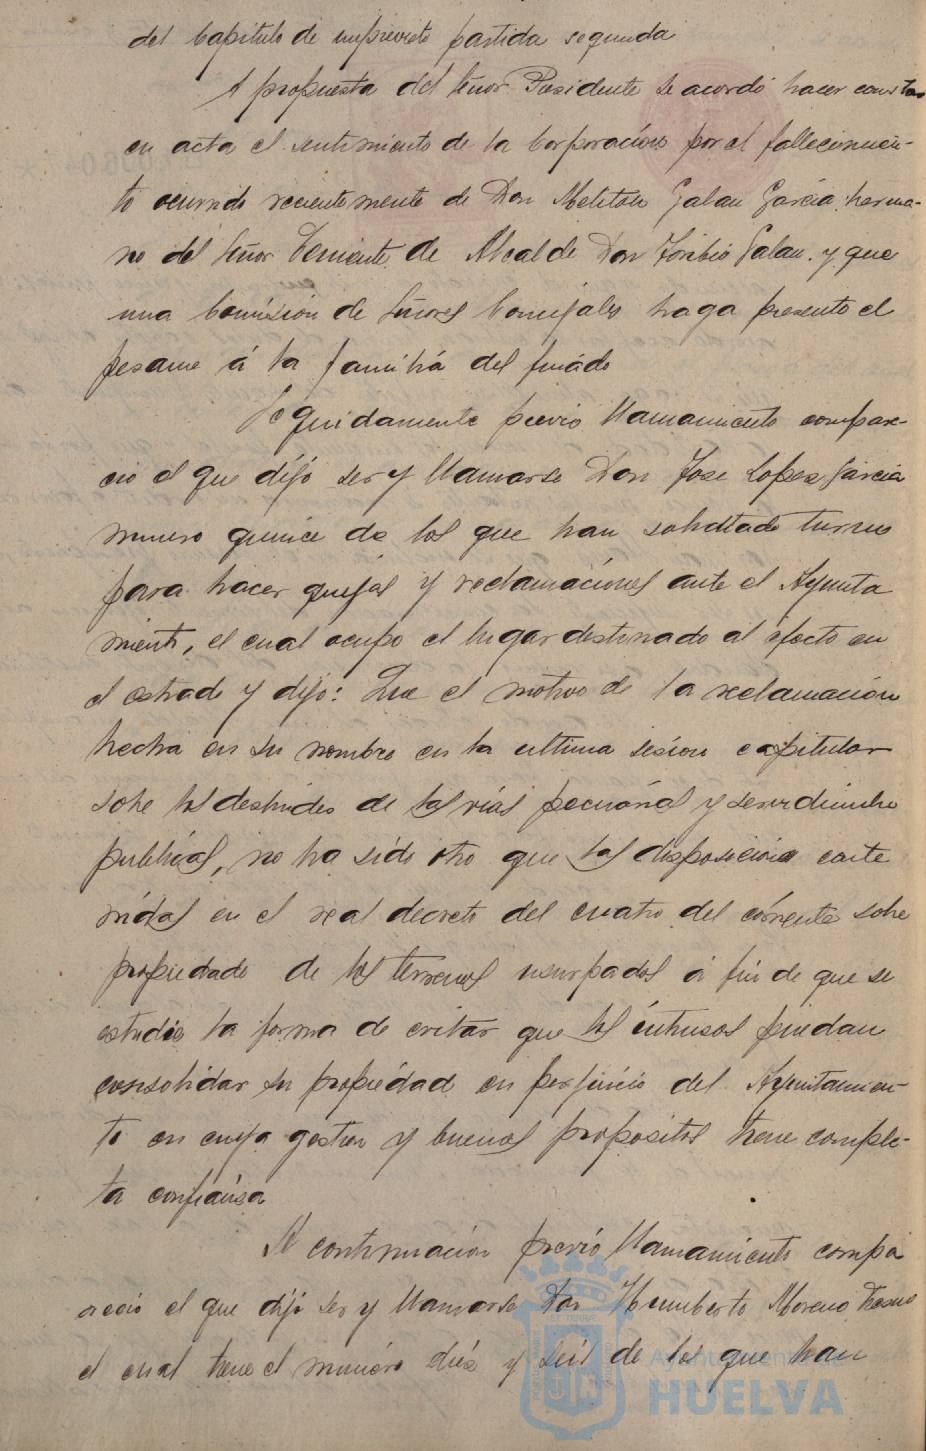 del Capitulo de imprevisto partida segunda
A propuesta del Señor Presidente se acordó hacer constar
en acta el sentimiento de la Corporación por el fallecimien-
to ocurrido recientemente de Don Meliton Galan Garcia, herma-
no del Señor Teniente de Alcalde Don Toribio Galan. y que
una Comisión de Señores Concejales haga presente el
pesame á la familia del finado
Seguidamente previo llamamiento compare-
cio el que dijo ser y llamarse Don Jose Lopez Garcia
numero quince de los que han solicitado turno
para hacer quejas y reclamaciones ante el Ayunta
miento, el cual ocupo el lugar destinado al efecto en
el estrado y dijo: Que el motivo de la reclamación
hecha en su nombre en la ultima sesion capitular
sobe los deslindes de las vias pecuarias y servidumbe
publicas, no ha sido otro que las disposicions conte
nidas en el real decreto del cuatro del corriente sobe
propiedade de los terrenos usurpados á fin de que se
estudie la forma de evitar que los intrusos puedan
consolidar su propiedad en perjuicio del Ayuntamien-
to en cuya gestion y buenos propositos tiene comple-
ta confianza
A continuación previó llamamiento compa
recio el que dijo ser y llamarse Don Humberto Moreno
el cual tiene el numero diez y seis de los que han
Ayuntamiento de
HUELVA